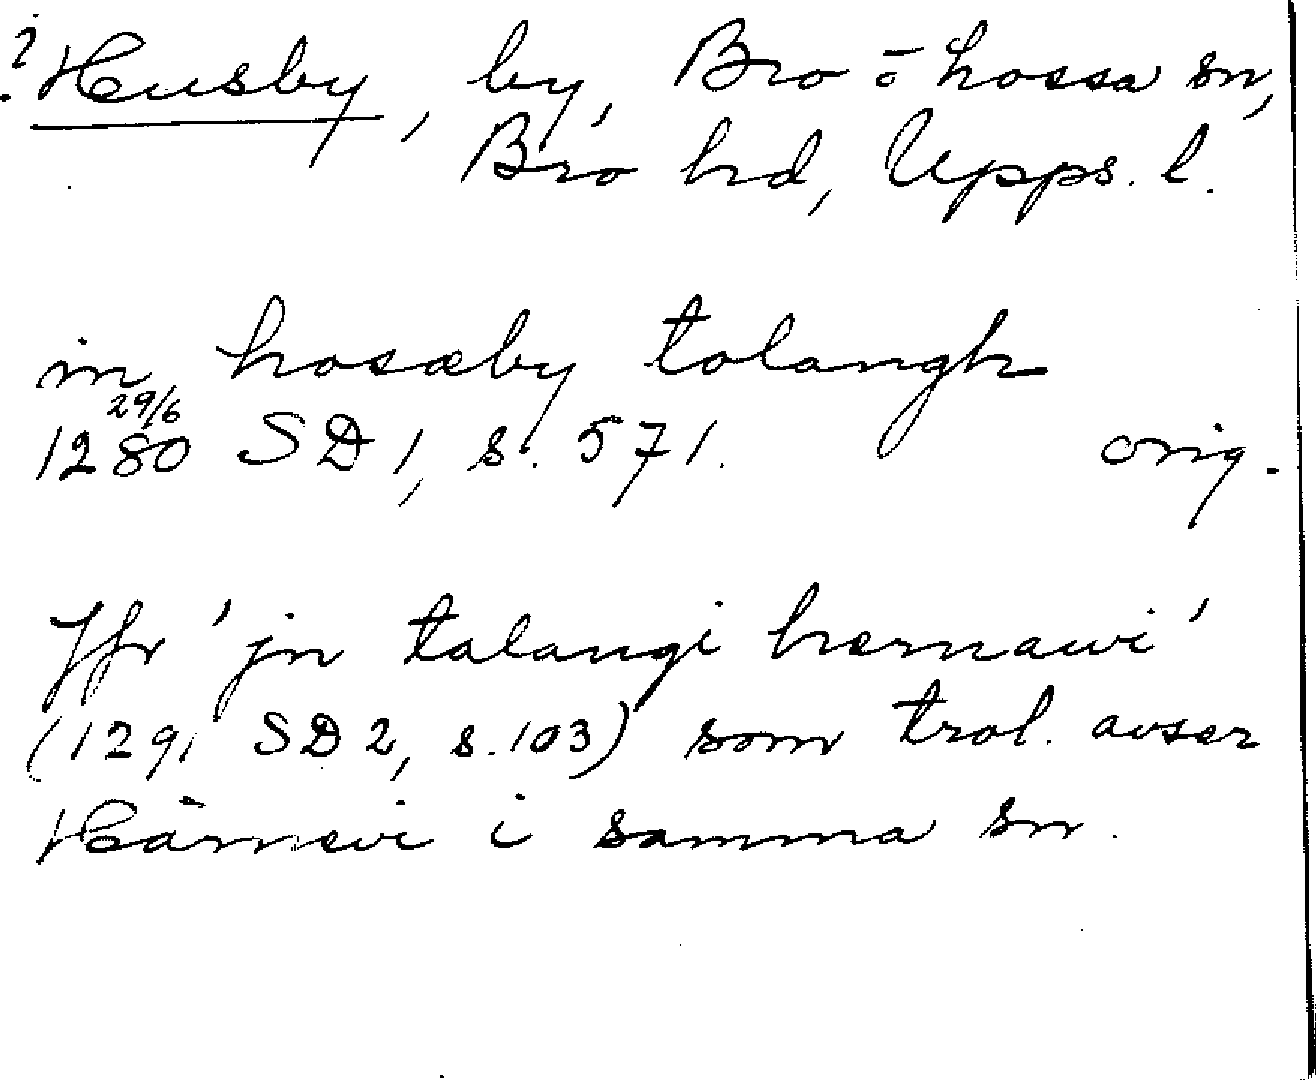 ? Husby, by, Bro o Lossa sn,
Bro hd, Upps. l.
in hosæby tolangh
29/6
1280 SD 1, s. 571. orig.
Jfr 'jn talangi hærnawi'
(1291 SD 2, s. 103) som trol. avser
Härnevi i samma sn.